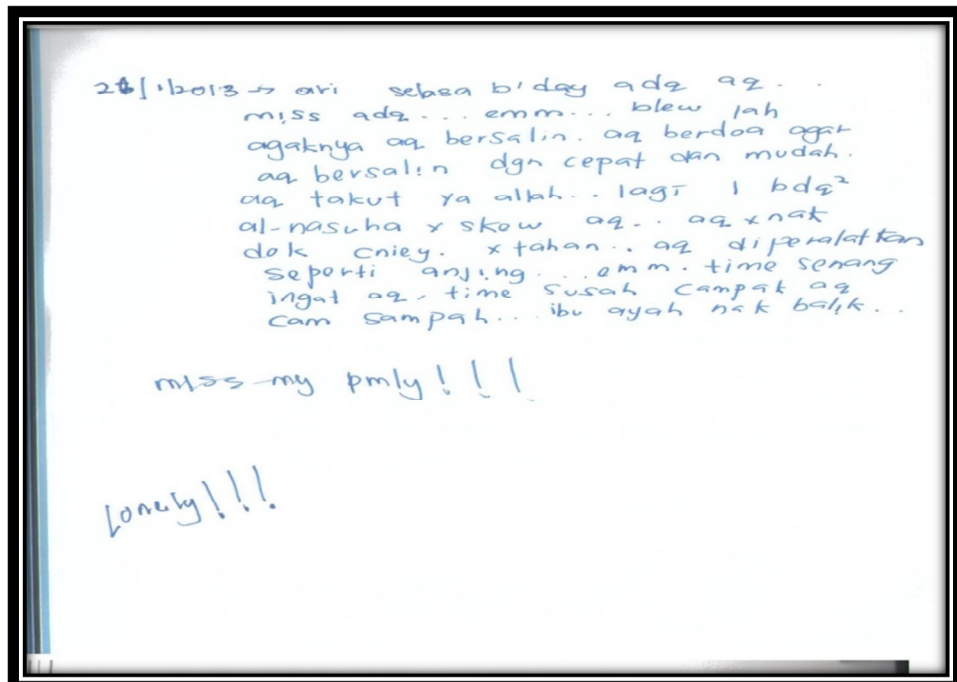 26/1/2013 → ari selasa b'day adq aq..
miss adq... emm... blew lah
agaknya aq bersalin. aq berdoa agar
aq bersalin dgn cepat dan mudah.
aq takut ya allah.. lagi 1 bdq²
al-nasuha x skew aq.. aq x nak
dok cniey. x tahan.. aq diperalatkan
seperti anjing... emm. time senang
ingat aq, time susah campak aq
cam sampah... ibu ayah nak balik..
miss my pmly!!!
Lonely!!!